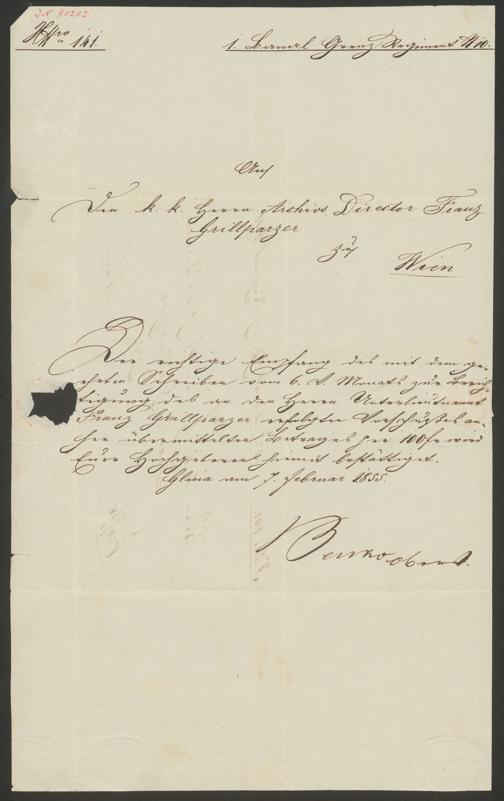 IN 80202
Nro 141.
1. Banal Grenz Regiment N 10.
An
Den k. k. Herrn Archivs Director Franz
Grillparzer
zu
Wien
Der richtige Empfang des mit dem ge-
ehrten Schreiben vom 6. d. Monats zur Berich-
tigung des an den Herrn Unterlieutenant
Franz Grillparzer erfolgten Vorschußes an-
her übermittelten Betrages per 100 fr wird
Euer Hochgeboren hiemit bestättiget.
Glina am 7. Februar 1855.
Benko Oberst.